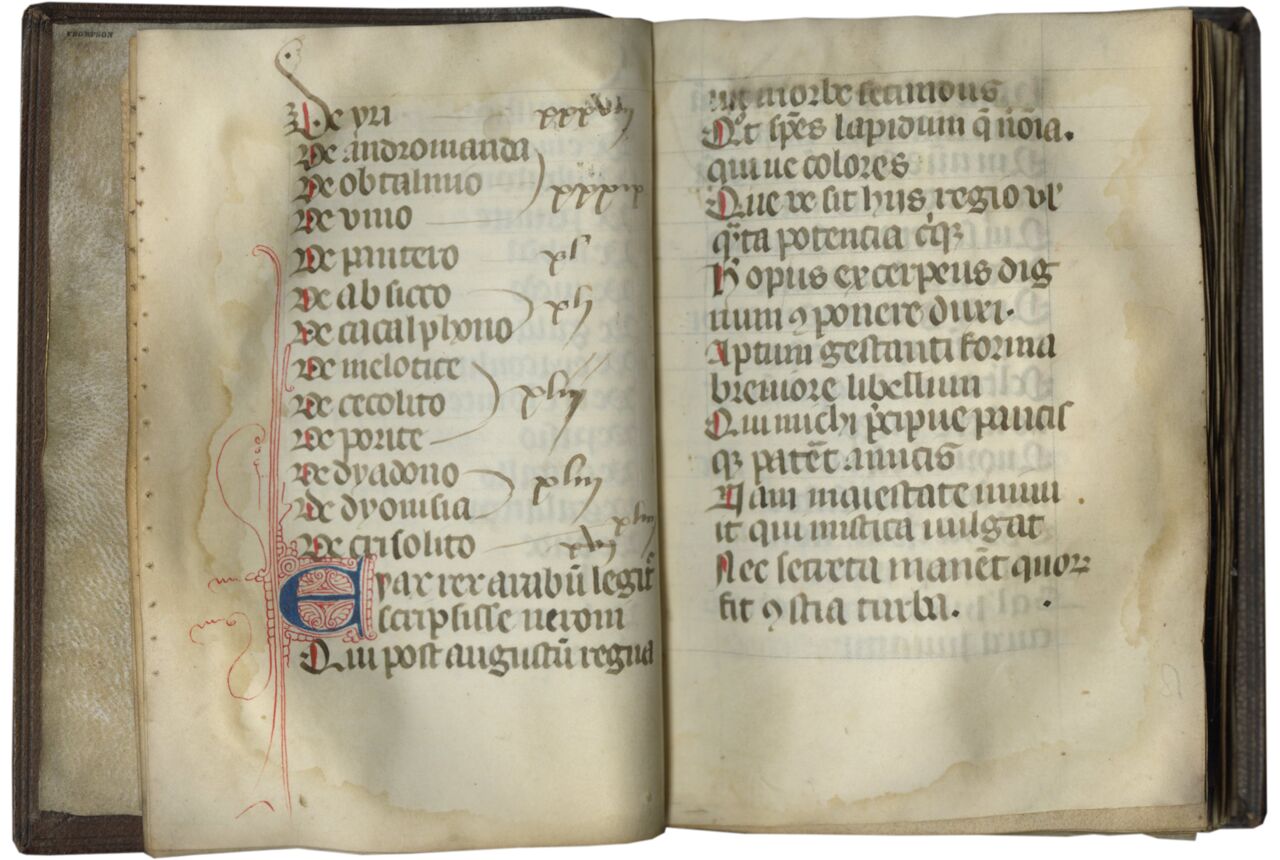 THOMPSON
De yri xxxviij
De andromanda
De obtalmio xxxix
De vnio
De pantero xl
De absicto
De cacalphono xlj
De melotite
De cecolito xlij
De porite
De dyadono xliij
De dyonisia
De crisolito xliiij
Evax rex arabū legit̄
scripsisse neroni
Qui post augustū regna
uit in orbe secundus
Qͦt sp̄es lapidum q̄ nōīa.
qui ue colores
Que ve sit hijs regio vl'
qͣ̄ta potencia cͥqꝫ
Hͦ opus excerpens dig
num ꝯponere duxi.
Aptum gestanti forma
breuiore libellum
Qui michi p̄cipue paucis
qꝫ patēt amicis
Nam maiestatē minu
it qui mistica uulgat
Nec secreta manēt quorꝝ
fit ꝯscia turba.